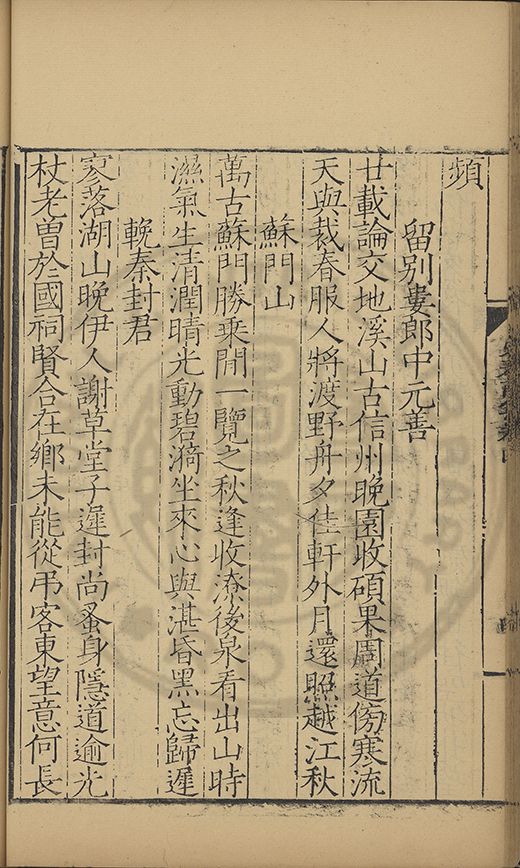 頻
留别婁郎中元善
廿載論交地溪山古信州晚園收碩果周道傍寒流
天與裁春服人將渡野舟夕佳軒外月還照越江秋
蘇門山
萬古蘇門勝乘閒一覽之秋逢收潦後泉看出山時
濕氣生清潤晴光動碧漪坐來心與湛昏黑忘歸遲
輓秦封君
寥落湖山晚伊人謝草堂子遲封尚蚤身隱道逾光
杖老曽於國祠賢合在鄉未能從弔客東望意何長